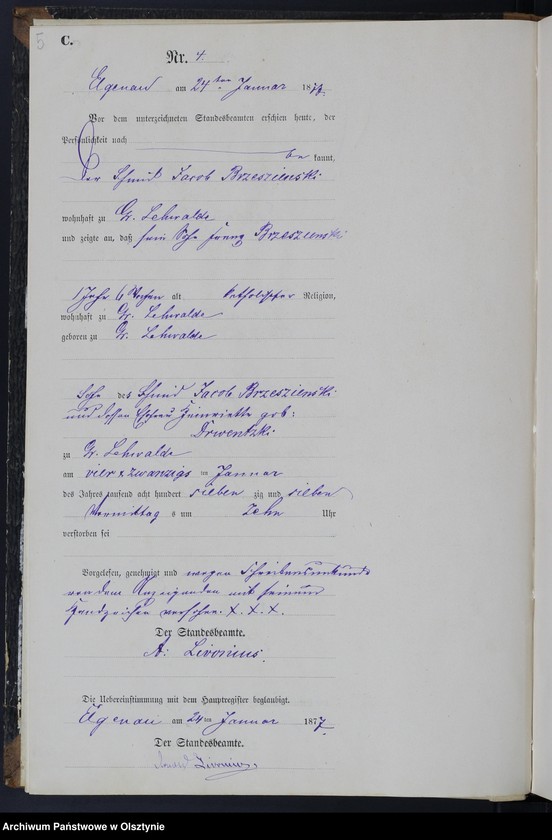 5
C.
Nr. 4.
Elgenau am 24ten Januar 1877.
Vor dem unterzeichneten Standesbeamten erschien heute, der
Persönlichkeit nach
be kannt,
der Schmid Jacob Brzeszienski
wohnhaft zu Gr. Lehwalde
und zeigte an, daß sein Sohn Franz Brzeszienski
1 Jahr 6 Wochen alt katholischer Religion,
wohnhaft zu Gr. Lehwalde
geboren zu Gr. Lehwalde
Sohn des Schmid Jacob Brzeszienski
und dessen Ehefrau Heinriette geb:
Drwentzki
zu Gr. Lehwalde
am vier & zwanzigs ten Januar
des Jahres tausend acht hundert sieben zig und sieben
Vormittag s um Zehn Uhr
verstorben sei
Vorgelesen, genehmigt und wegen Schreibensunkunde
von dem Anzeigenden mit seinem
Handzeichen versehen. X. X. X.
Der Standesbeamte.
A: Livonius.
Die Uebereinstimmung mit dem Hauptregister beglaubigt.
Elgenau am 24ten Januar 1877
Der Standesbeamte.
Livonius.
Archiwum Państwowe w Olsztynie